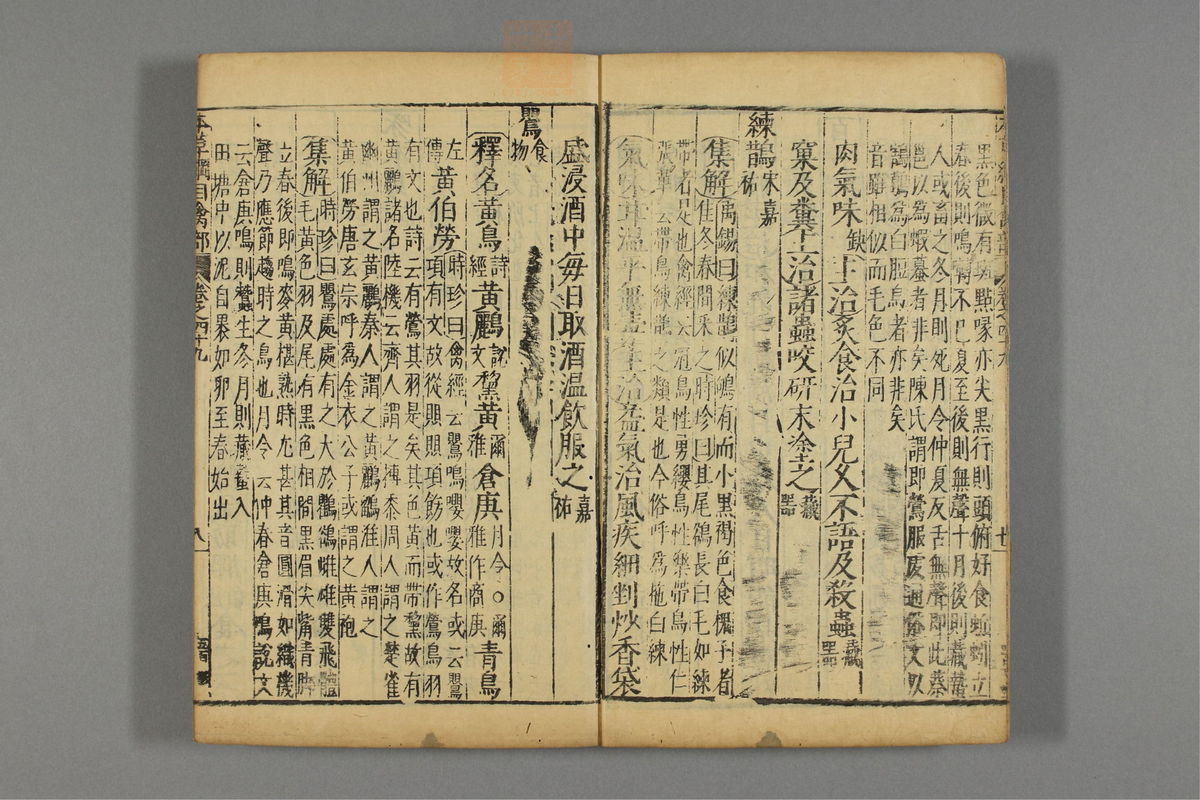 黑色微有斑點喙亦尖黑行則頭俯好食蚯蚓立
春後則鳴囀不已夏至後則無聲十月後則藏蟄
人或畜之冬月則死月令仲夏反舌無聲即此蔡
邕以為蝦蟇者非矣陳氏謂即鶯服䖍通俗文以
鷱鶨為白脰烏者亦非矣
音雖相似而毛色不同
肉氣味缺主治炙食治小兒久不語及殺蟲
窠及糞主治諸蟲咬研末塗之藏器
練鵲宋嘉祐
集解禹錫曰練鵲似鴝鵒而小黑褐色食槐子者
佳冬春間采之時珍曰其尾鵒長白毛如練
帶者是也禽經云冠鳥性勇纓鳥性樂帶鳥性仁
張華云帶鳥練鵲之類是也今俗呼為拖白練
氣味甘溫平無毒主治益氣治風疾細剉炒香袋
盛浸酒中每日取酒溫飲服之嘉祐
鸎食物
釋名黃鳥詩經黃鸝說文鵹黃爾雅倉庚月令○爾雅作商庚青鳥
左傳黃伯勞時珍曰禽經云鸎鳴嚶嚶故名或云鸎
項有文故從賏賏項飾也或作鶯鳥羽
有文也詩云有鶯其羽是矣其色黃而帶黧故有
黃鸝諸名陸機云齊人謂之摶黍周人謂之楚雀
幽州謂之黃鸝秦人謂之黃鸝鶹淮人謂之
黃伯勞唐玄宗呼為金衣公子或謂之黃袍
集解時珍曰鸎處處有之大於鸜鵒雌雄雙飛體
毛黃色羽及尾有黑色相間黑眉尖觜青腳
立春後即鳴麥黃椹熟時尤甚其音圓滑如織機
聲乃應節趨時之鳥也月令云仲春倉庚鳴說文
云倉庚鳴則蠶生冬月則藏蟄入
田塘中以泥自裹如卵至春始出
本草綱目禽部 卷之四十九 八